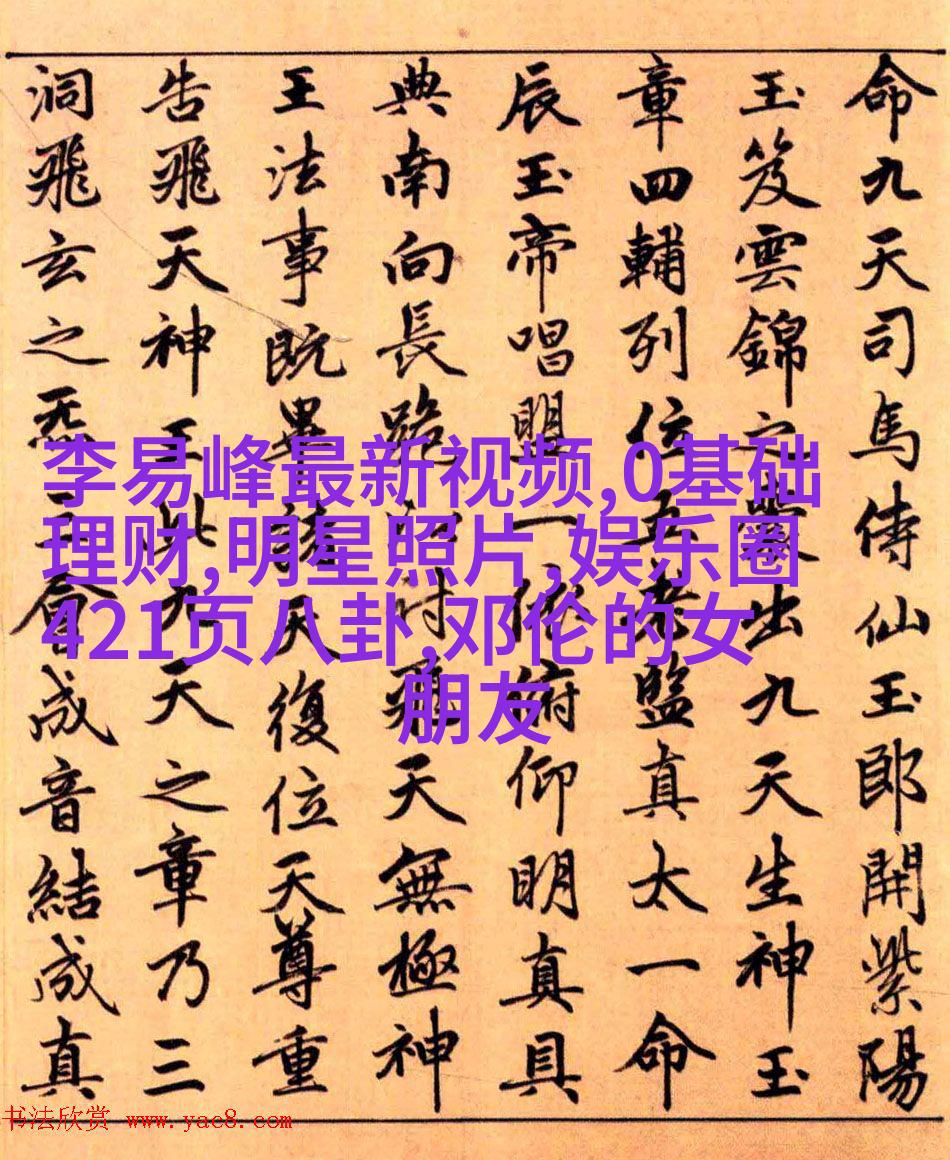 命九天司馬侍仙玉郎開紫陽
玉笈雲錦之出九天生神玉
章四輔列位五老監真太一命
辰玉帝唱盟一依俯仰明真具
典南向長跪付飛天無極神
王法事既畢諸天復位天尊重
告飛天神王此九天之章乃三
洞飛玄之炁三合成音結成真
李易峰最新视频,0基础
理财,明星照片,娱乐圈
421页八卦,邓伦的女
朋友
书法欣赏 www.yac8.com